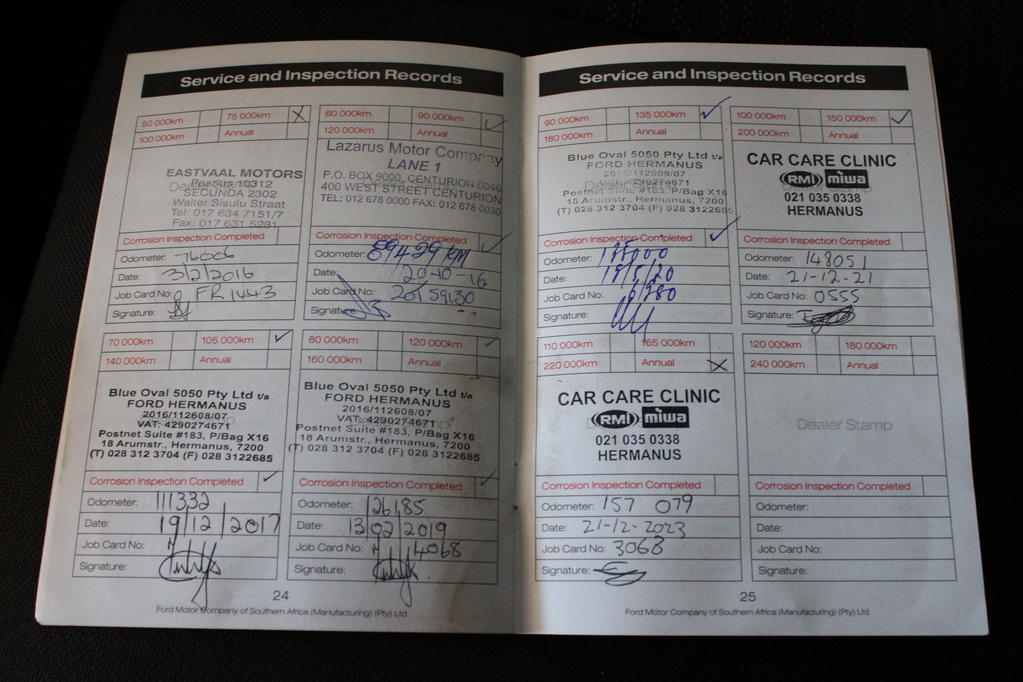 Service and Inspection Records
50 000km 75 000km X
100 000km Annual
EASTVAAL MOTORS
Posbus 10312
SECUNDA 2302
Walter Sisulu Straat
Tel: 017 634 7151/7
Fax: 017 631 5281
Corrosion Inspection Completed
Odometer: 76006
Date: 3/2/2016
Job Card No: FR1443
Signature:
60 000km 90 000km ✓
120 000km Annual
Lazarus Motor Company
LANE 1
P.O. BOX 9000, CENTURION 0046
400 WEST STREET CENTURION
TEL: 012 678 0000 FAX: 012 678 0030
Corrosion Inspection Completed ✓
Odometer: 89429 KM
Date: 20-10-16
Job Card No: 20159130
Signature:
70 000km 105 000km ✓
140 000km Annual
Blue Oval 5050 Pty Ltd t/a
FORD HERMANUS
2016/112608/07
VAT: 4290274671
Postnet Suite #183, P/Bag X16
18 Arumstr., Hermanus, 7200
(T) 028 312 3704 (F) 028 3122685
Corrosion Inspection Completed ✓
Odometer: 111332
Date: 19/12/2017
Job Card No:
Signature:
80 000km 120 000km ✓
160 000km Annual
Blue Oval 5050 Pty Ltd t/a
FORD HERMANUS
2016/112608/07
VAT: 4290274671
Postnet Suite #183, P/Bag X16
18 Arumstr., Hermanus, 7200
(T) 028 312 3704 (F) 028 3122685
Corrosion Inspection Completed ✓
Odometer: 126185
Date: 13/02/2019
Job Card No: 4068
Signature:
24
Ford Motor Company of Southern Africa (Manufacturing) (Pty) Ltd
Service and Inspection Records
90 000km 135 000km ✓
180 000km Annual
Blue Oval 5050 Pty Ltd t/a
FORD HERMANUS
2016/112608/07
4290274671
Postnet Suite #183, P/Bag X16
18 Arumstr., Hermanus, 7200
(T) 028 312 3704 (F) 028 312268
Corrosion Inspection Completed ✓
Odometer:
Date:
Job Card No:
Signature:
100 000km 150 000km ✓
200 000km Annual
CAR CARE CLINIC
RMI miwa
021 035 0338
HERMANUS
Corrosion Inspection Completed
Odometer: 148051
Date: 21-12-21
Job Card No: 0555
Signature:
110 000km 165 000km
220 000km Annual X
CAR CARE CLINIC
RMI miwa
021 035 0338
HERMANUS
Corrosion Inspection Completed
Odometer: 157 079
Date: 21-12-2023
Job Card No: 3068
Signature:
120 000km 180 000km
240 000km Annual
Dealer Stamp
Corrosion Inspection Completed
Odometer:
Date:
Job Card No:
Signature:
25
Ford Motor Company of Southern Africa (Manufacturing) (Pty) Ltd